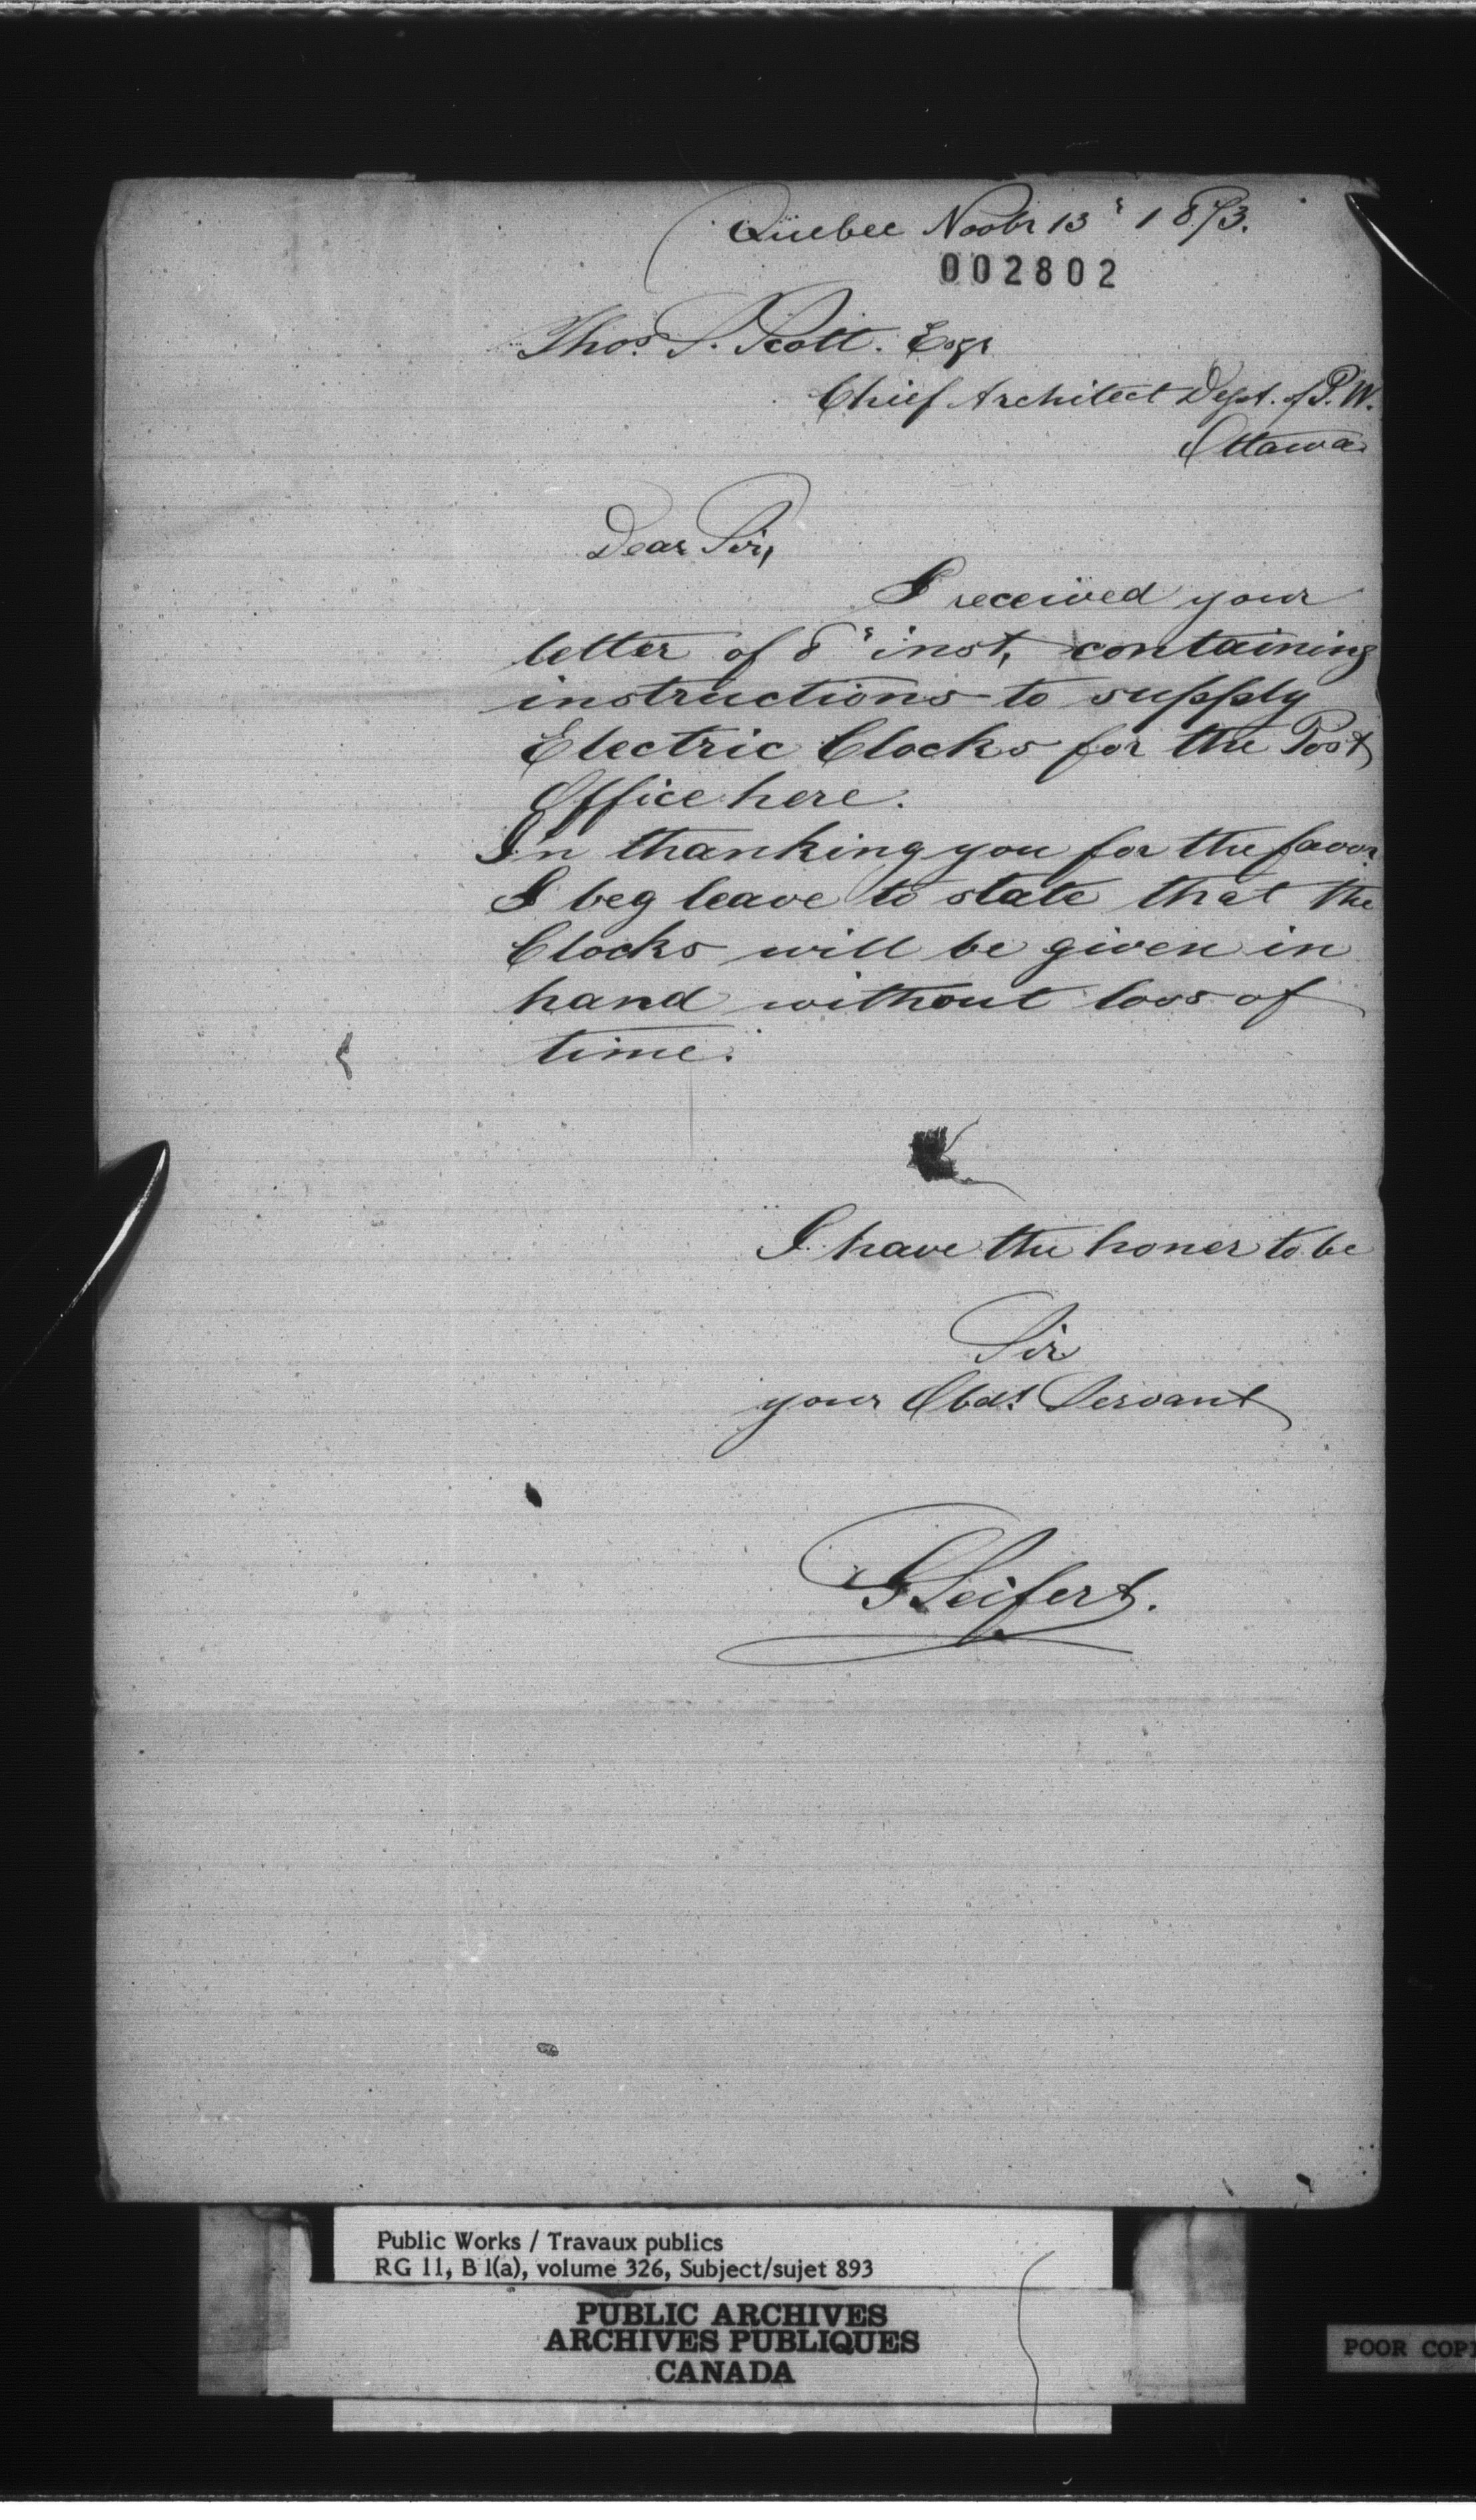 Quebec Novbr 13" 1873.
002802
Thos. S. Scott. Esqr
Chief Architect Dept. of P. W.
Ottawa
Dear Sir,
I received your
letter of 8" inst, containing
instructions to supply
Electric Clocks for the Post
Office here.
In thanking you for the favor
I beg leave to state that the
Clocks will be given in
hand without loss of
time.
I have the honer to be
Sir
your Obdt Servant
G Seifert.
Public Works / Travaux publics
RG 11, B 1(a), volume 326, Subject/sujet 893
PUBLIC ARCHIVES
ARCHIVES PUBLIQUES
CANADA
POOR COP